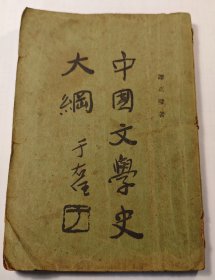 譚正璧著
中國文學史
大綱
于右任